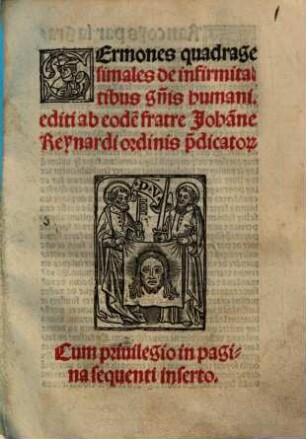 SErmones quadrage
simales de infirmita-
tibus gñis humani.
editi ab eodē fratre Johāne
Reynardi ordinis p̄dicatorꝝ
Cum priuilegio in pagi-
na sequenti inserto.